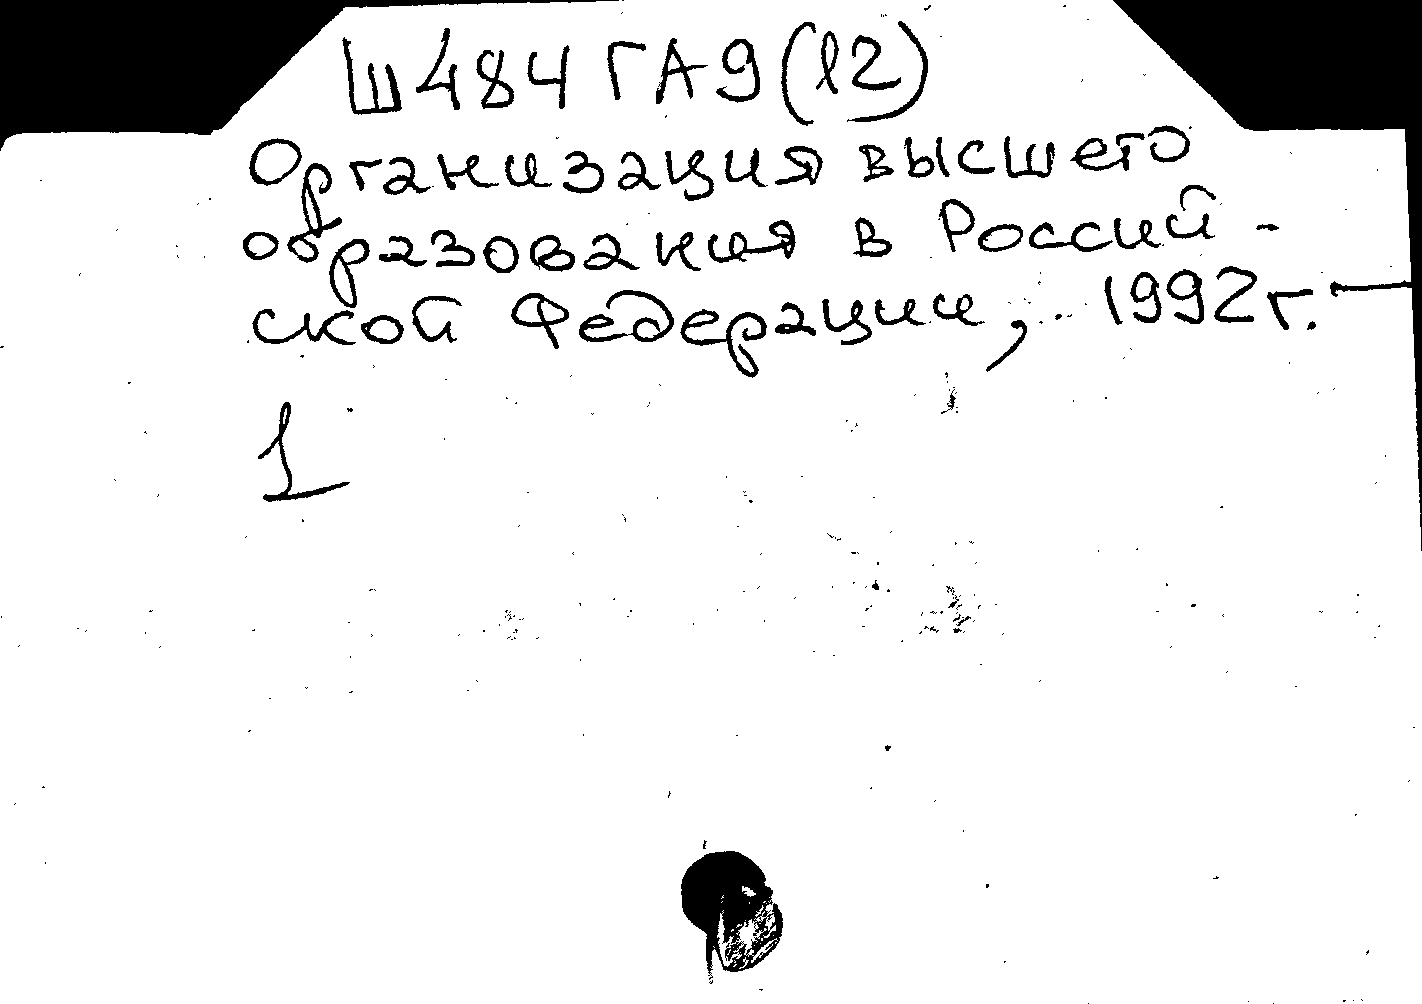 Ш484ГА9(12)
Организация высшего
образования в Россий-
ской Федерации, 1992г.—
1